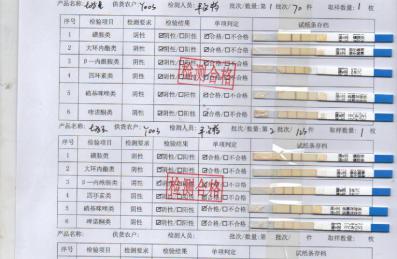 产品名称: 供货农户: Y005 检测人员: 批次/数量:第 1 批次/ 70 件 取样数量: 1 枚
序号 检验项目 检测要求 检验结果 单项判定 试纸条存档
1 磺胺类 阴性 ☑阴性/□阳性 ☑合格/□不合格
2 大环内酯类 阴性 ☑阴性/□阳性 ☑合格/□不合格
3 β-内酰胺类 阴性 ☑阴性/□阳性 ☑合格/□不合格
4 四环素类 阴性 ☑阴性/□阳性 ☑合格/□不合格
5 硝基咪唑类 阴性 ☑阴性/□阳性 ☑合格/□不合格
6 喹诺酮类 阴性 ☑阴性/□阳性 ☑合格/□不合格
检测合格
产品名称: 供货农户: Y005 检测人员: 批次/数量:第 2 批次/ 件 取样数量: 1 枚
序号 检验项目 检测要求 检验结果 单项判定 试纸条存档
1 磺胺类 阴性 ☑阴性/□阳性 ☑合格/□不合格
2 大环内酯类 阴性 ☑阴性/□阳性 ☑合格/□不合格
3 β-内酰胺类 阴性 ☑阴性/□阳性 ☑合格/□不合格
4 四环素类 阴性 ☑阴性/□阳性 ☑合格/□不合格
5 硝基咪唑类 阴性 ☑阴性/□阳性 ☑合格/□不合格
6 喹诺酮类 阴性 ☑阴性/□阳性 ☑合格/□不合格
检测合格
产品名称: 供货农户: 检测人员: 批次/数量:第 批次/ 件 取样数量: 枚
序号 检验项目 检测要求 检验结果 单项判定 试纸条存档